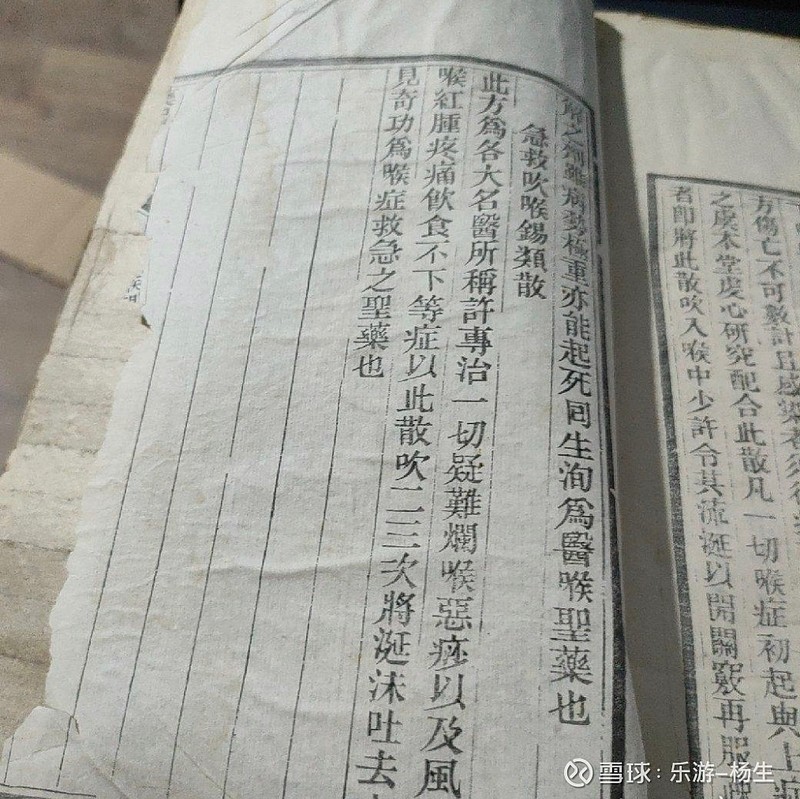 方傷亡不可數計且感染者須
之虞本堂虔心研究配合此散凡一切喉症初起與上
者卽將此散吹入喉中少許令其流涎以開關竅再服
解之劑雖病勢極重亦能起死回生洵爲醫喉聖藥也
急救吹喉錫類散
此方爲各大名醫所稱許專治一切疑難爛喉惡痧以及風
喉紅腫疼痛飲食不下等症以此散吹二三次將涎沫吐去
見奇功爲喉症救急之聖藥也
雪球：乐游-杨生